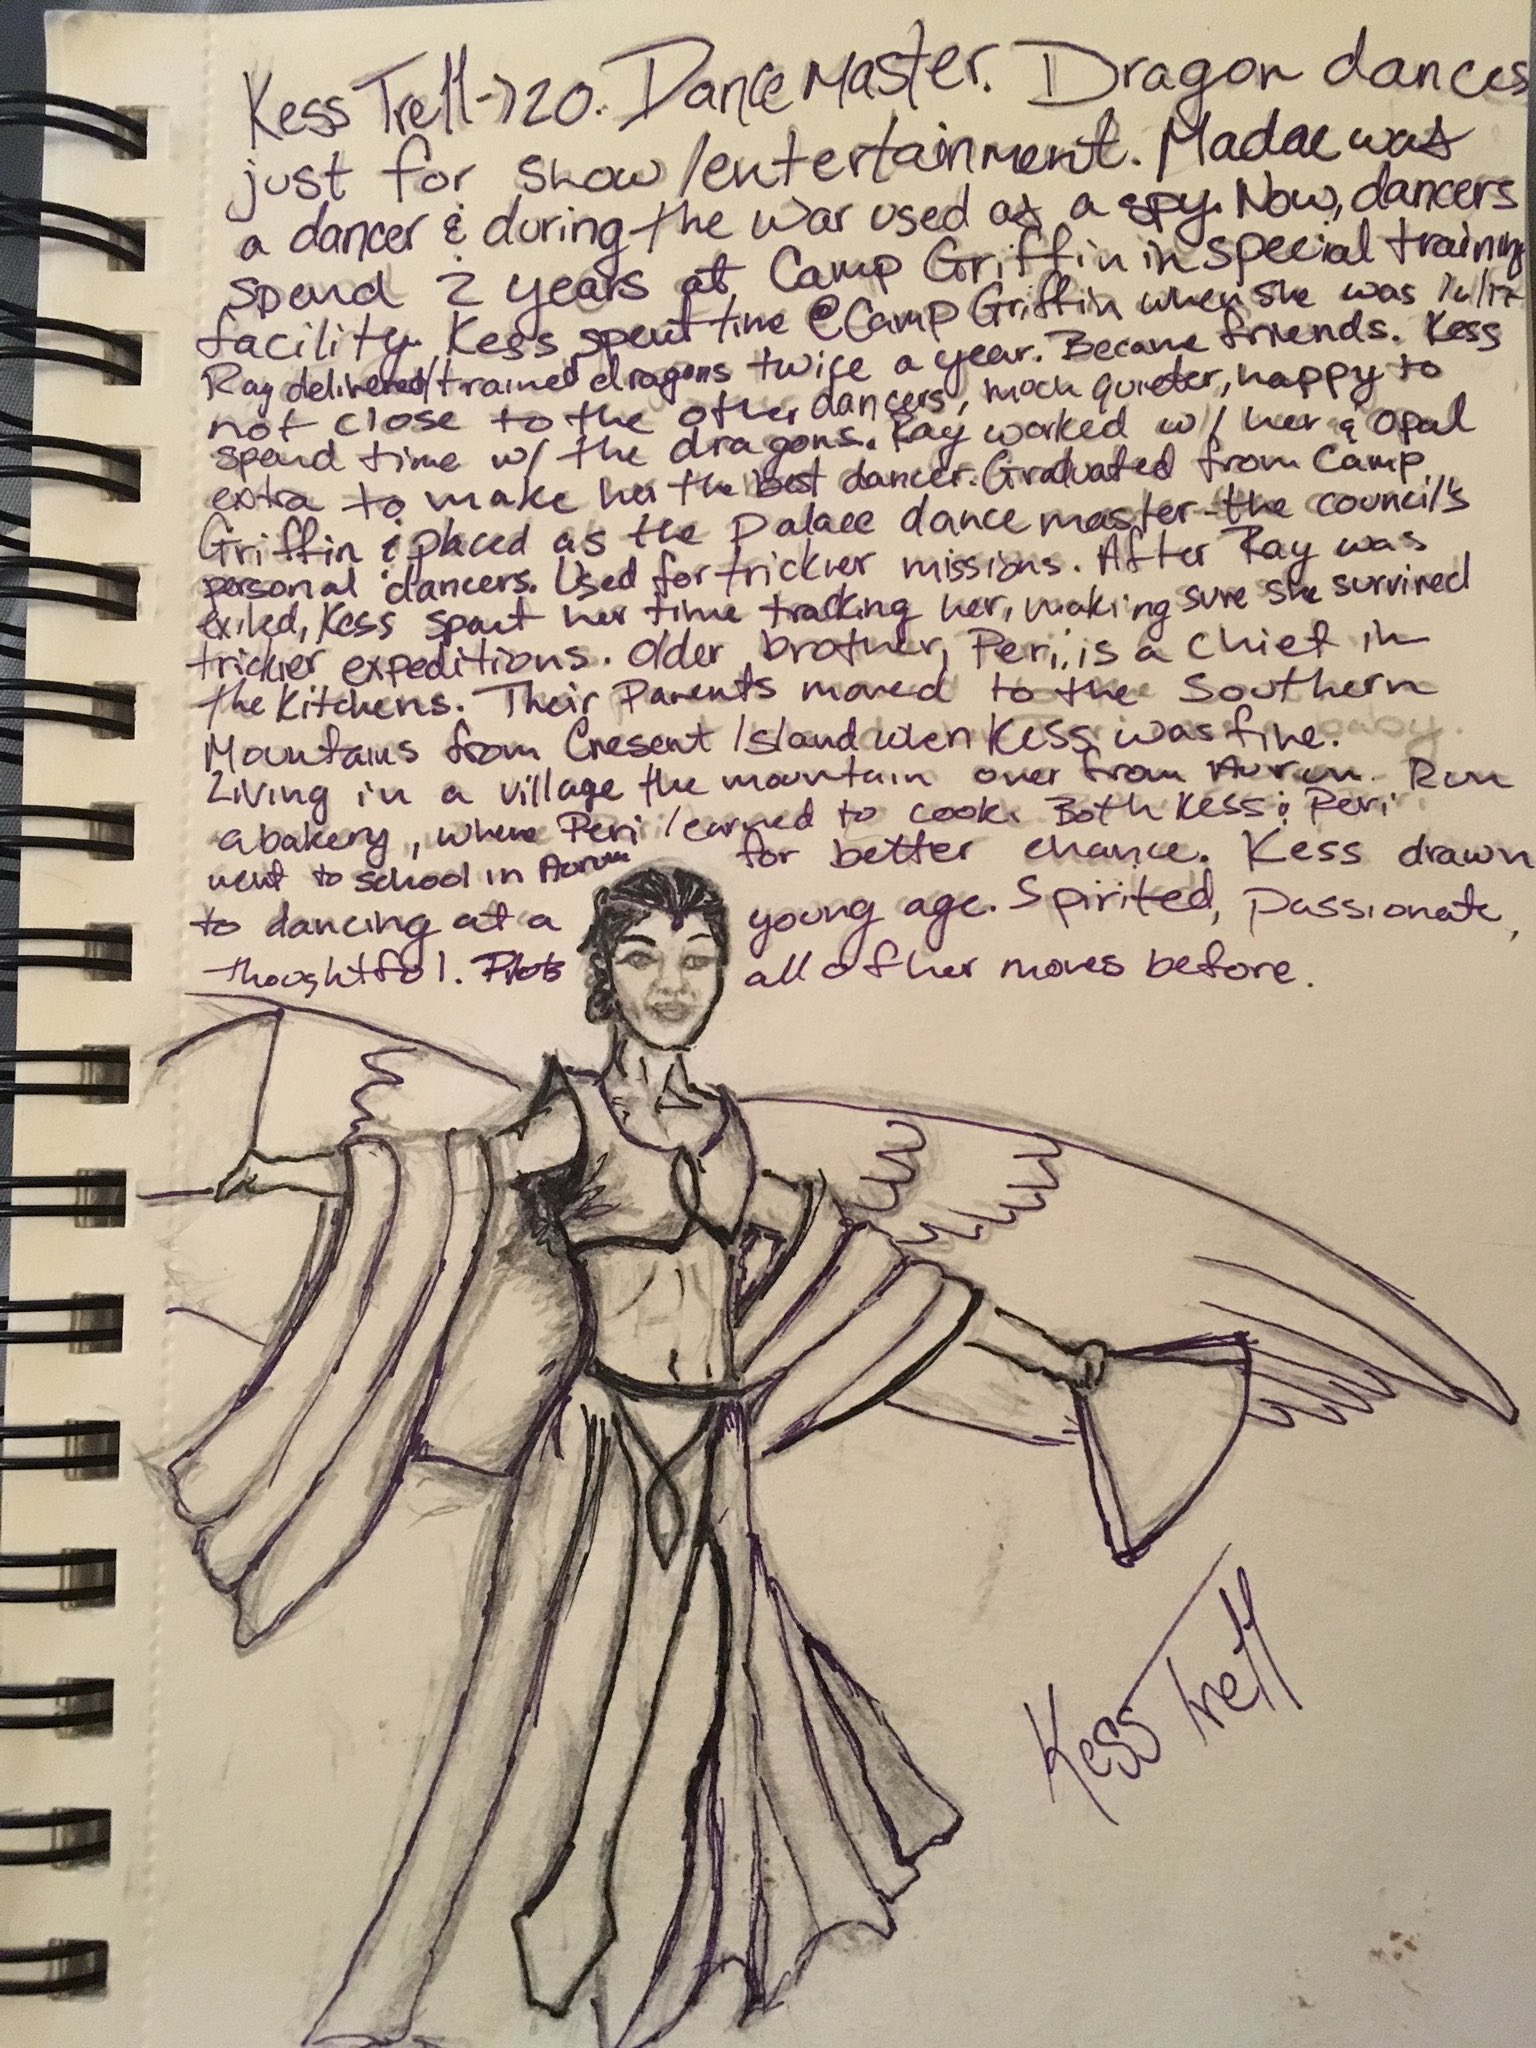 Kess Trell → 20. Dance Master. Dragon dances
just for show/entertainment. Madae was
a dancer & during the war used as a spy. Now, dancers
spend 2 years at Camp Griffin in special training
facility. Kess spent time @ Camp Griffin when she was 16/17
Ray delivered/trained dragons twice a year. Became friends. Kess
not close to the other dancers, much quieter, happy to
spend time w/ the dragons. Ray worked w/ her & Opal
extra to make her the best dancer. Graduated from Camp
Griffin & placed as the palace dance master - the council's
personal dancers. Used for trickier missions. After Ray was
exiled, Kess spent her time tracking her, making sure she survived
trickier expeditions. Older brother, Peri, is a chief in
the Kitchens. Their Parents moved to the Southern
Mountains from Cresent Island when Kess was five. baby.
Living in a village the mountain over from Aurum. Run
a bakery, where Peri learned to cook. Both Kess & Peri
went to school in Aurum for better chance. Kess drawn
to dancing at a young age. Spirited, passionate,
thoughtful. Plots all of her moves before.
Kess Trell